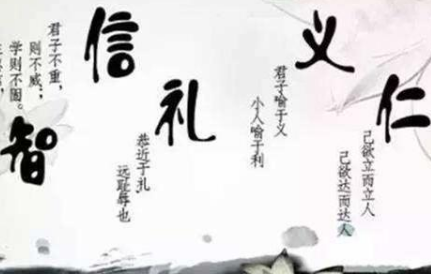 仁
己欲立而立人
己欲达而达人
义
君子喻于义
小人喻于利
礼
恭近于礼
远耻辱也
信
君子不重，
则不威；
学则不固。
智